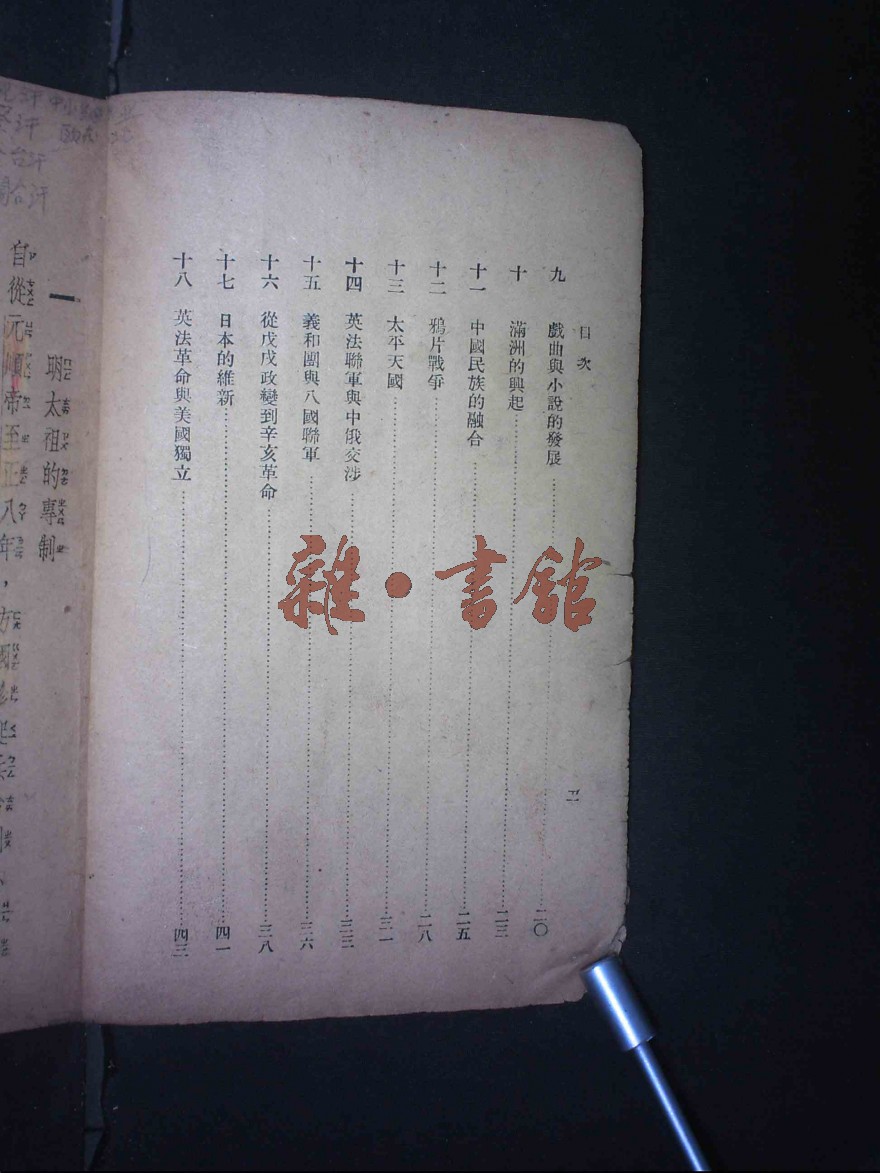 目次
九 戲曲與小說的發展……二〇
十 滿洲的興起……二三
十一 中國民族的融合……二五
十二 鴉片戰爭……二八
十三 太平天國……三一
十四 英法聯軍與中俄交涉……三三
十五 義和團與八國聯軍……三六
十六 從戊戌政變到辛亥革命……三八
十七 日本的維新……四一
十八 英法革命與美國獨立……四三
二
雜·書館
一 明太祖的專制
自從元順帝至正八年,方國